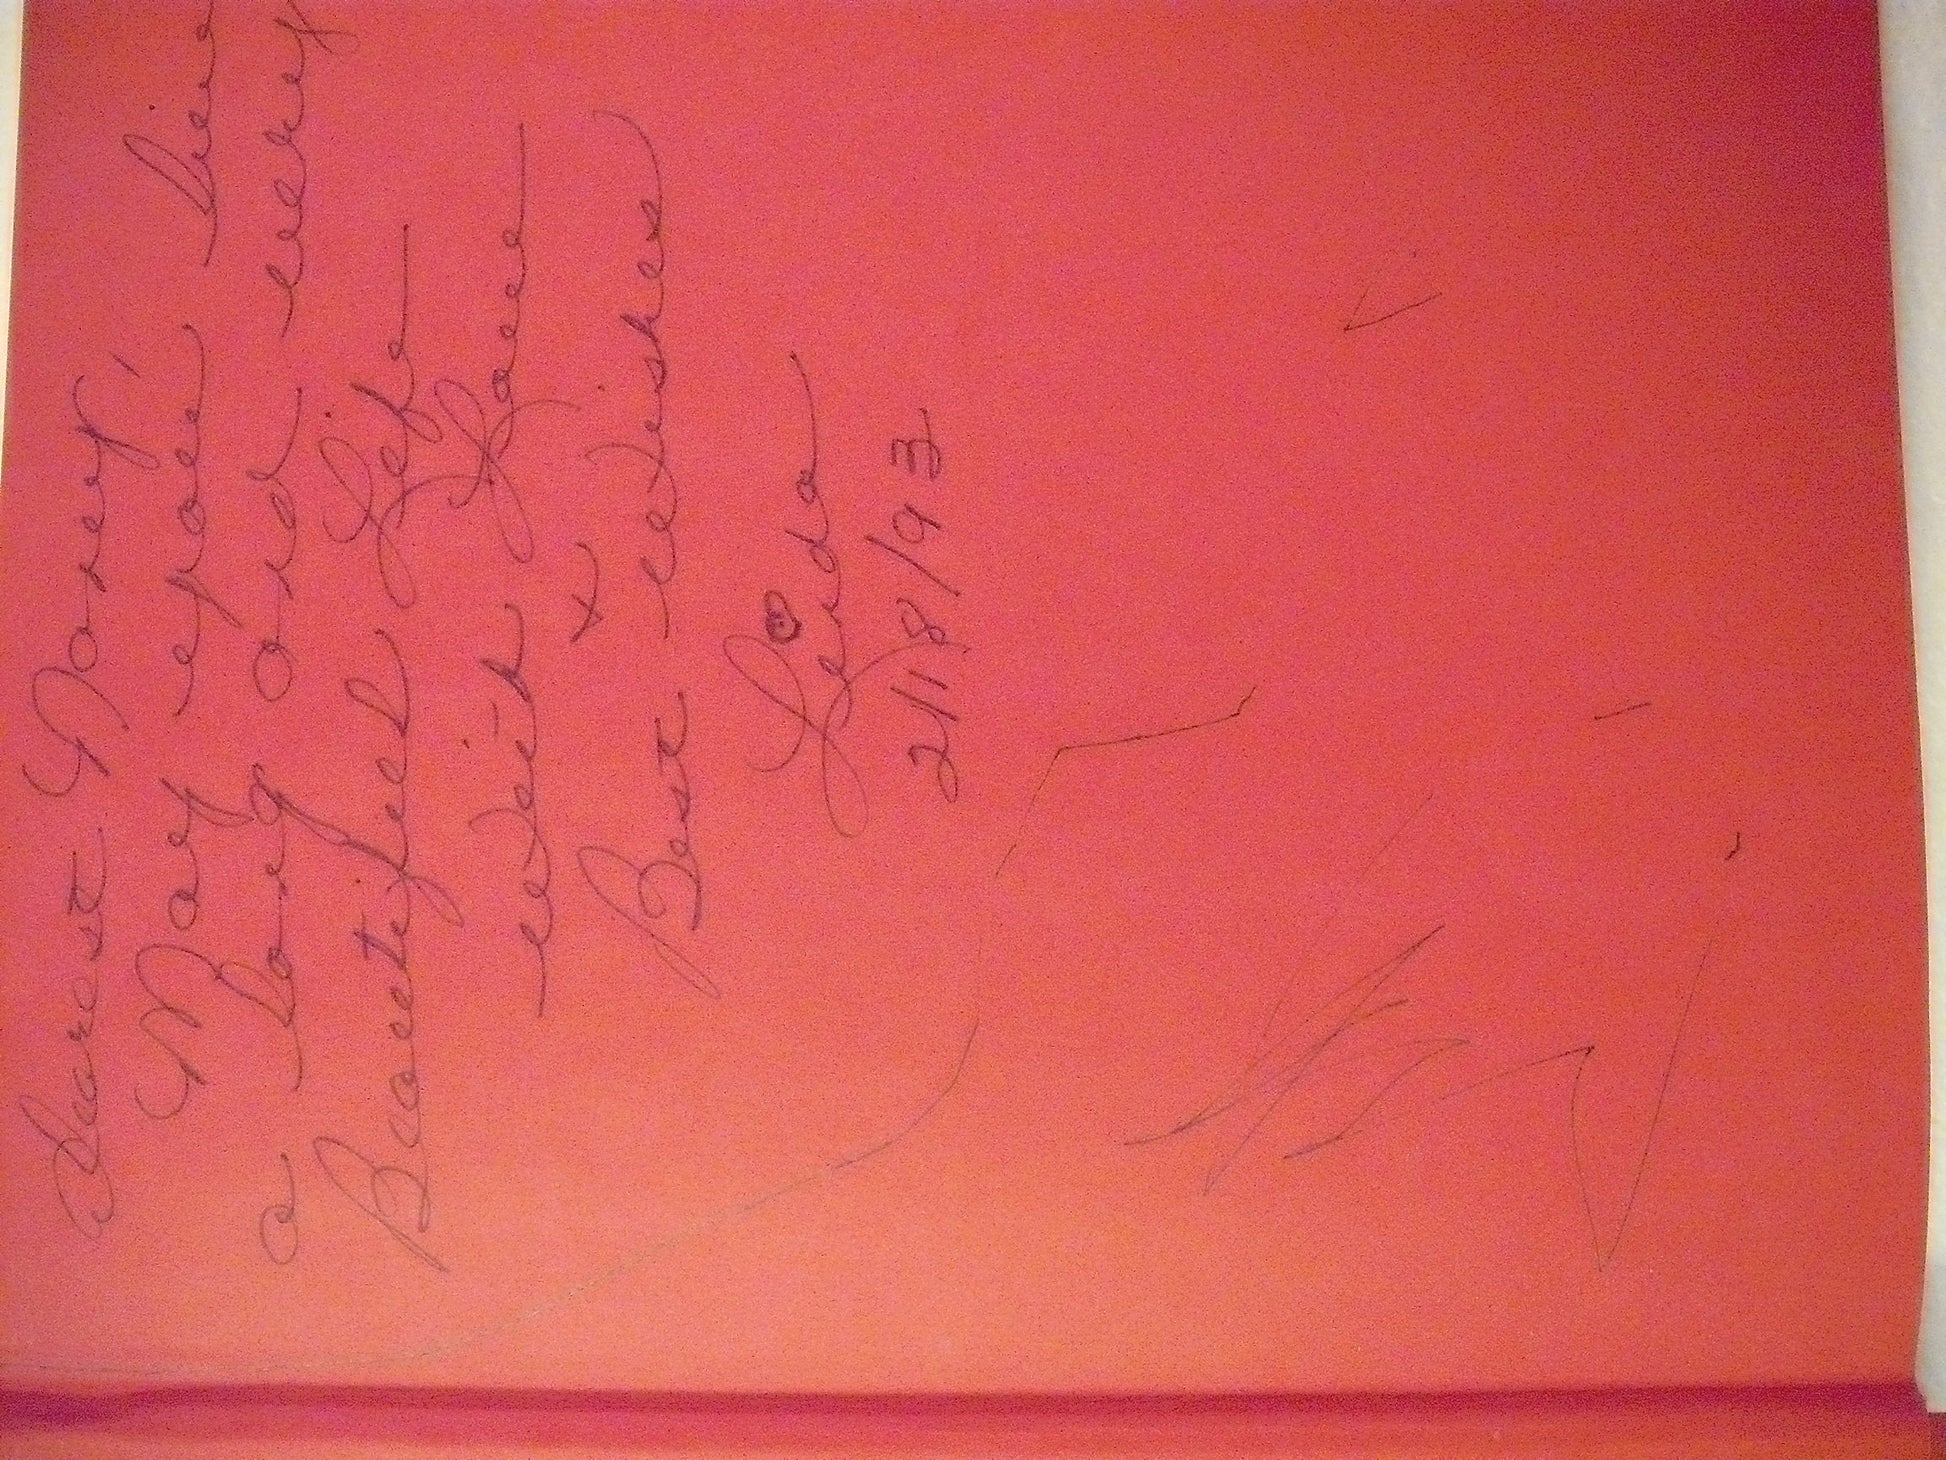 Dearest
May you live
a long and very
Beautiful Life
with Love
+
Best wishes
Linda
2/18/93